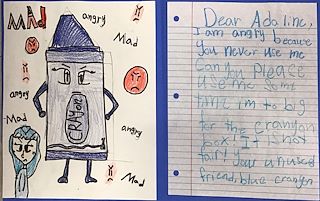 MAD
angry
Mad
angry
Mad
CRAYOLA
angry
Mad
Dear Adaline,
I am angry because
you never use me
Can you please
use me some
time im to big
for the cranyon
box! It is not
fair! your unused
friend, blue cranyon